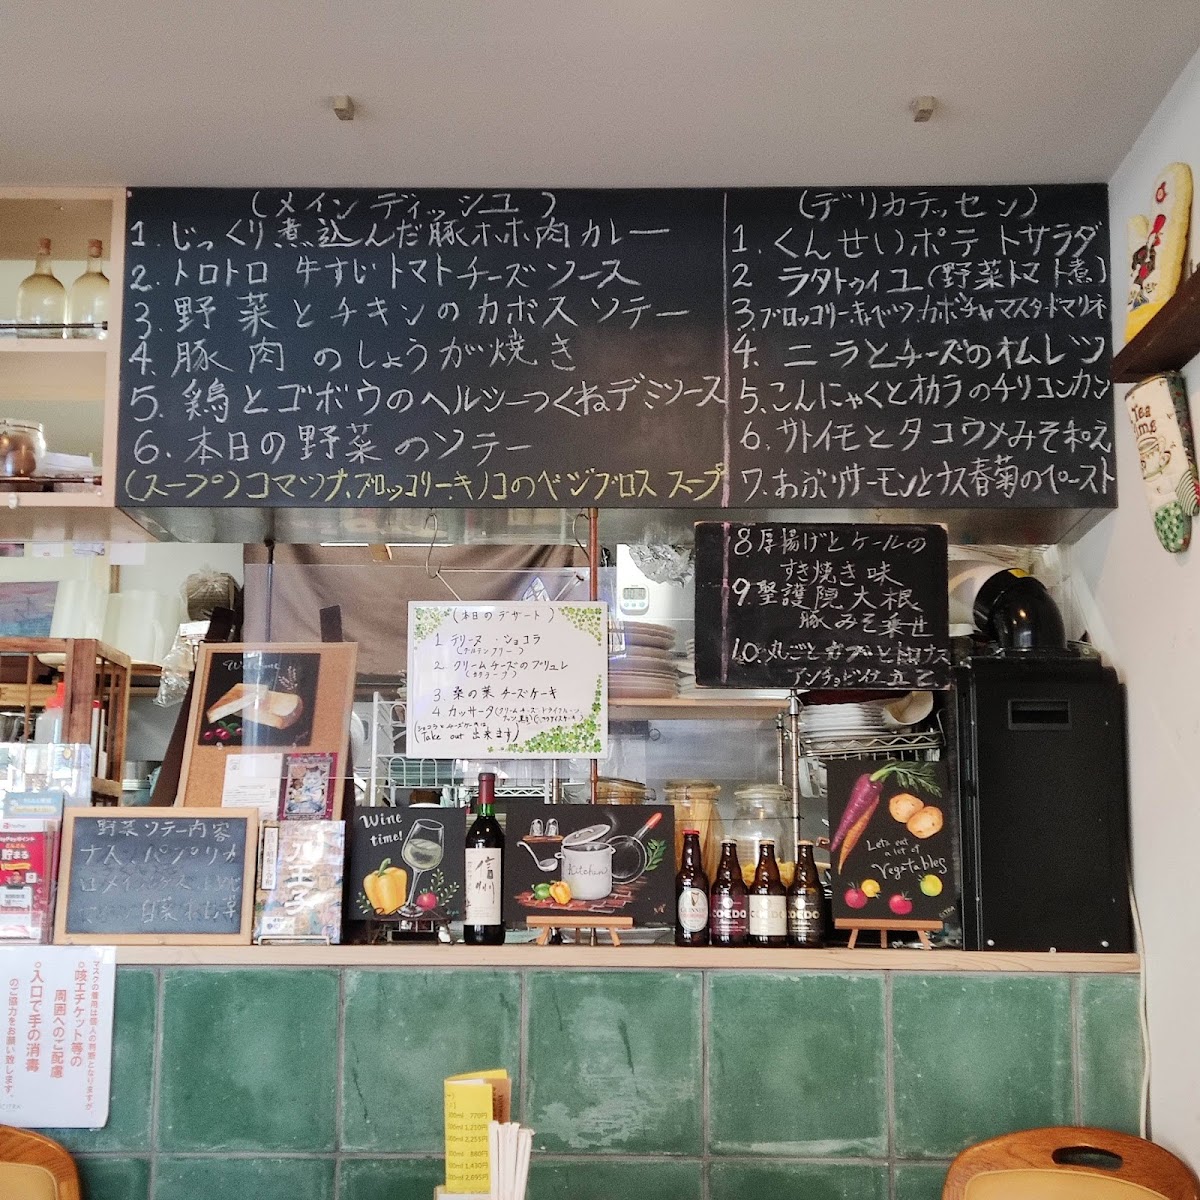 (メインディッシュ)
1. じっくり煮込んだ豚ホホ肉カレー
2. トロトロ 牛すじトマトチーズソース
3. 野菜とチキンのカボスソテー
4. 豚肉のしょうが焼き
5. 鶏とゴボウのヘルシーつくねデミソース
6. 本日の野菜のソテー
(スープ) コマツナ、ブロッコリー、キノコのベジブロススープ
(デリカテッセン)
1. くんせいポテトサラダ
2 ラタトゥイユ(野菜トマト煮)
3. ブロッコリー・キャベツ・カボチャマスタードマリネ
4. ニラとチーズのオムレツ
5. こんにゃくとオカラのチリコンカン
6. サトイモとタコウメみそ和え
7. あぶりサーモンとナス春菊のペースト
8 厚揚げとケールの
すき焼き味
9. 聖護院大根
豚みそ乗せ
10. 丸ごとカブとトロナス
アンチョビソテー
(本日のデザート)
1 テリーヌ・ショコラ
(グルテンフリー)
2 クリームチーズのブリュレ
3. 桑の葉チーズケーキ
4 カッサータ
Take out 出来ます)
Welcome
野菜ソテー内容
ナス パプリカ
白菜
Wine
time!
信州
kitchen
GUINNESS
COEDO
COEDO
COEDO
Let's eat
a lot of
Vegetables
Tea
time
貯まる
マスクの着用は個人の判断となりますが、
○咳エチケット等の
周囲へのご配慮
○入口で手の消毒
のご協力をお願い致します。
770円
1,210円
2,255円
880円
1,430円
2,695円